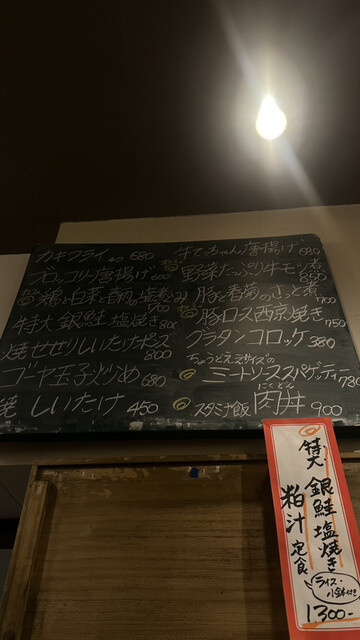 カキフライ 680
ブロッコリー唐揚げ 600
鶏と白菜と春雨の塩煮込み 700
特大 銀鮭 塩焼き 800
焼せせり しいたけポン酢 800
ゴーヤ玉子炒め 680
焼 しいたけ 450
てっちゃん唐揚げ 680
野菜たっぷり牛モツ煮
豚と春菊のさっと煮 700
豚ロース西京焼き 750
グラタンコロッケ 380
ちょうどええサイズの
ミートソーススパゲッティー 780
スタミナ飯 肉丼 900
にくどん
特大 銀鮭 塩焼き
粕汁 定食
ライス・小鉢付き
1300-